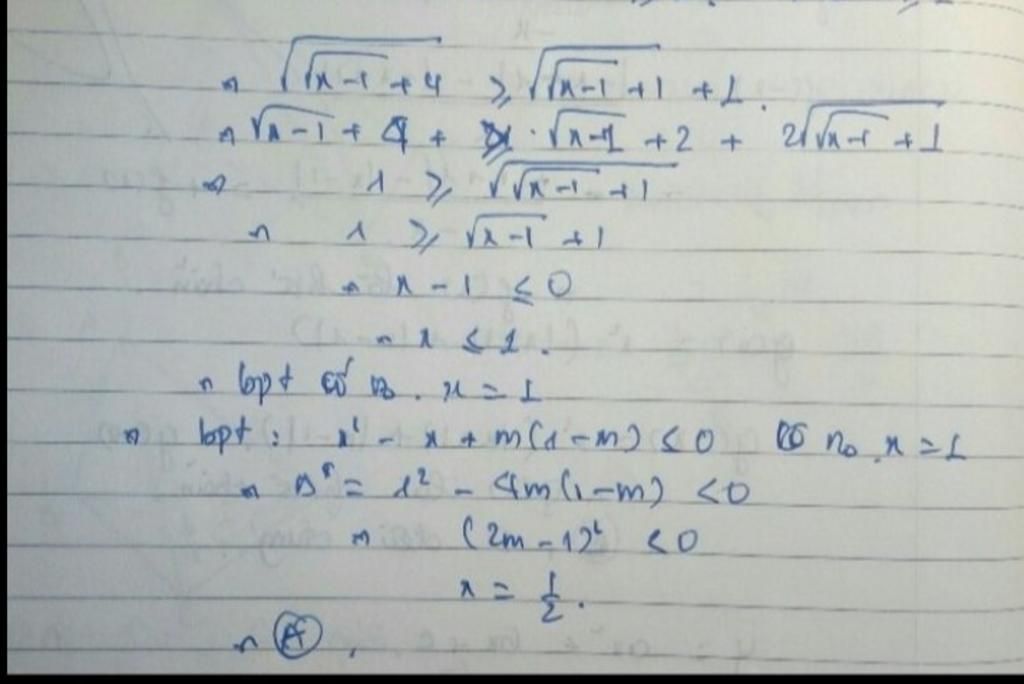 ⇒ √(√(x-1) + 4) ≥ √(√(x-1) + 1) + 1.
⇒ √(x-1) + 4 + · √(x-1) + 2 + 2√(√(x-1) + 1)
⇒ 1 ≥ √(√(x-1) + 1)
⇒ 1 ≥ √(x-1) + 1
⇒ x - 1 ≤ 0
⇒ x ≤ 1.
⇒ bpt có no. x = 1
⇒ bpt: x² - x + m(1-m) ≤ 0 có no x = 1
⇒ Δ = 1² - 4m(1-m) < 0
⇒ (2m - 1)² ≤ 0
x = 1/2.
⇒ Ⓐ.